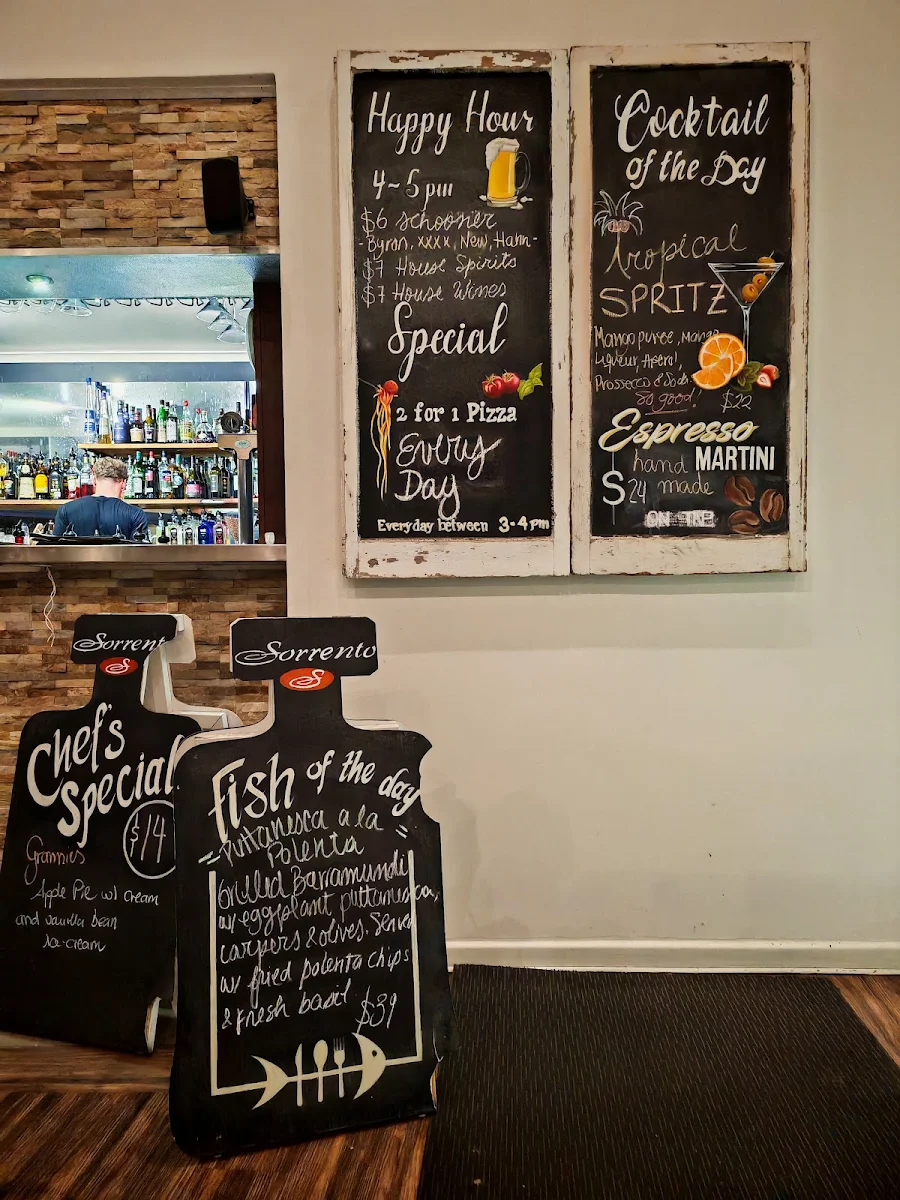 Happy Hour
4~5 pm
$6 schooner
-Byron, xxxx, New, Hahn-
$7 House Spirits
$7 House Wines
Special
2 for 1 Pizza
Every
Day
Everyday between 3-4pm
Cocktail
of the Day
Tropical
SPRITZ
Mango puree, Mango
Liqueur, Aperol,
Prossecco & Soda
So good! $22
Espresso
hand MARTINI
$24 made
ON TAP
Sorrent
S
Chef's
Special
$14
Grannies
Apple Pie w/ cream
and vanilla bean
Ice-cream
Sorrento
S
fish of the day
Puttanesca a la
Polenta
Grilled Barramundi
w/ eggplant puttanesca,
carpers & olives. Serve
w/ fried polenta chips
& fresh basil
$39